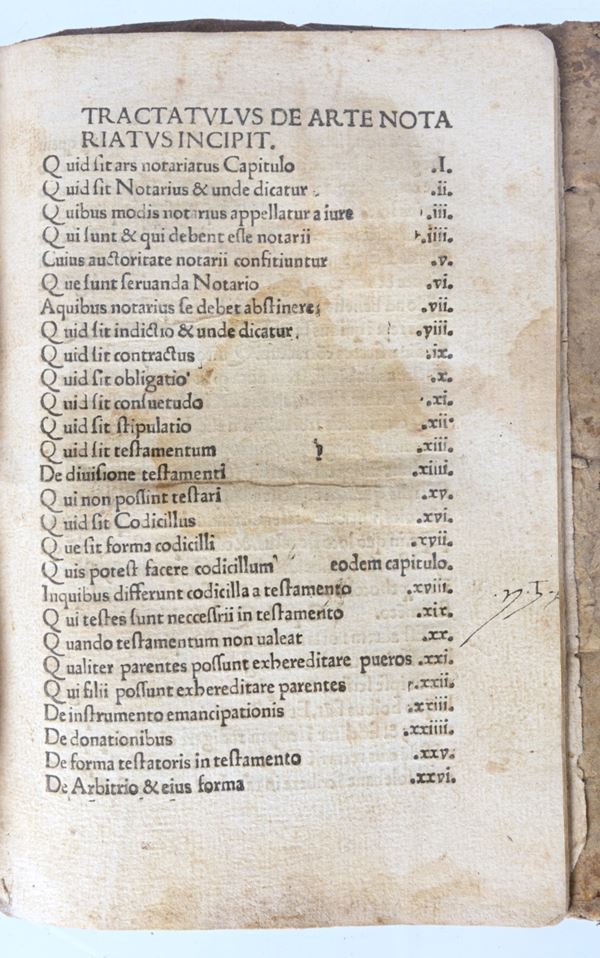 TRACTATVLVS DE ARTE NOTA
RIATVS INCIPIT.
Quid ſit ars notariatus Capitulo .I.
Quid ſit Notarius & unde dicatur .ii.
Quibus modis notarius appellatur a iure .iii.
Qui ſunt & qui debent eſſe notarii .iiii.
Cuius auctoritate notarii conſitiuntur .v.
Que ſunt ſeruanda Notario .vi.
Aquibus notarius ſe debet abſtinere .vii.
Quid ſit indictio & unde dicatur .viii.
Quid ſit contractus .ix.
Quid ſit obligatio .x.
Quid ſit conſuetudo .xi.
Quid ſit ſtipulatio .xii.
Quid ſit teſtamentum .xiii.
De diuiſione teſtamenti .xiiii.
Qui non poſſint teſtari .xv.
Quid ſit Codicillus .xvi.
Que ſit forma codicilli .xvii.
Quis poteſt facere codicillum eodem capitulo.
Inquibus differunt codicilla a teſtamento .xviii.
Qui teſtes ſunt necceſſrii in teſtamento .xix.
Quando teſtamentum non ualeat .xx.
Qualiter parentes poſſunt exhereditare pueros .xxi.
Qui filii poſſunt exhereditare parentes .xxii.
De inſtrumento emancipationis .xxiii.
De donationibus .xxiiii.
De forma teſtatoris in teſtamento .xxv.
De Arbitrio & eius forma .xxvi.